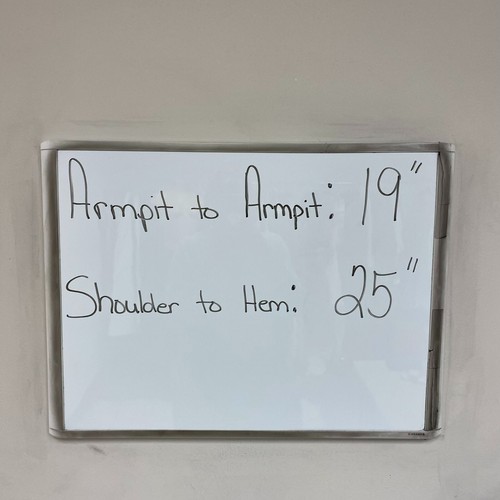 Armpit to Armpit: 19"
Shoulder to Hem: 25"